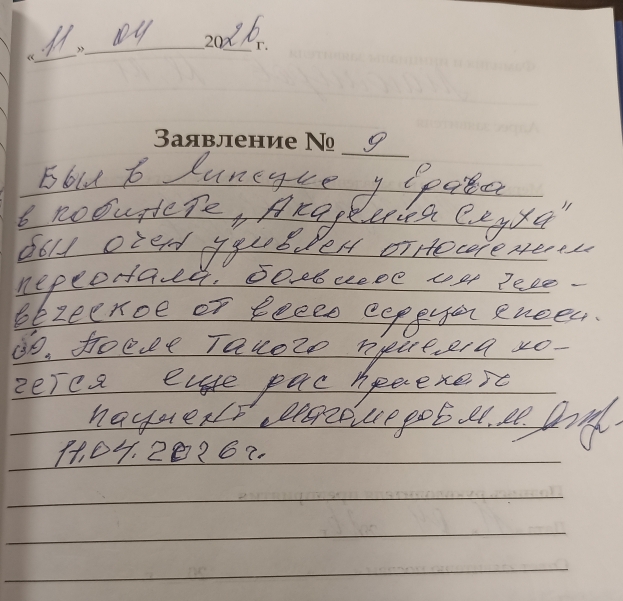 «11» 04 2026 г.
Заявление № 9
Был в Липецке у врача
в кобинете "Академия Слуха"
был очен удивлен отношением
персонала. большое им чело-
веческое от всего сердцы спаси-
бо. После такого приема хо-
чется еще рас приехать
пациент Магомедов М.М.
11.04.2026 г.